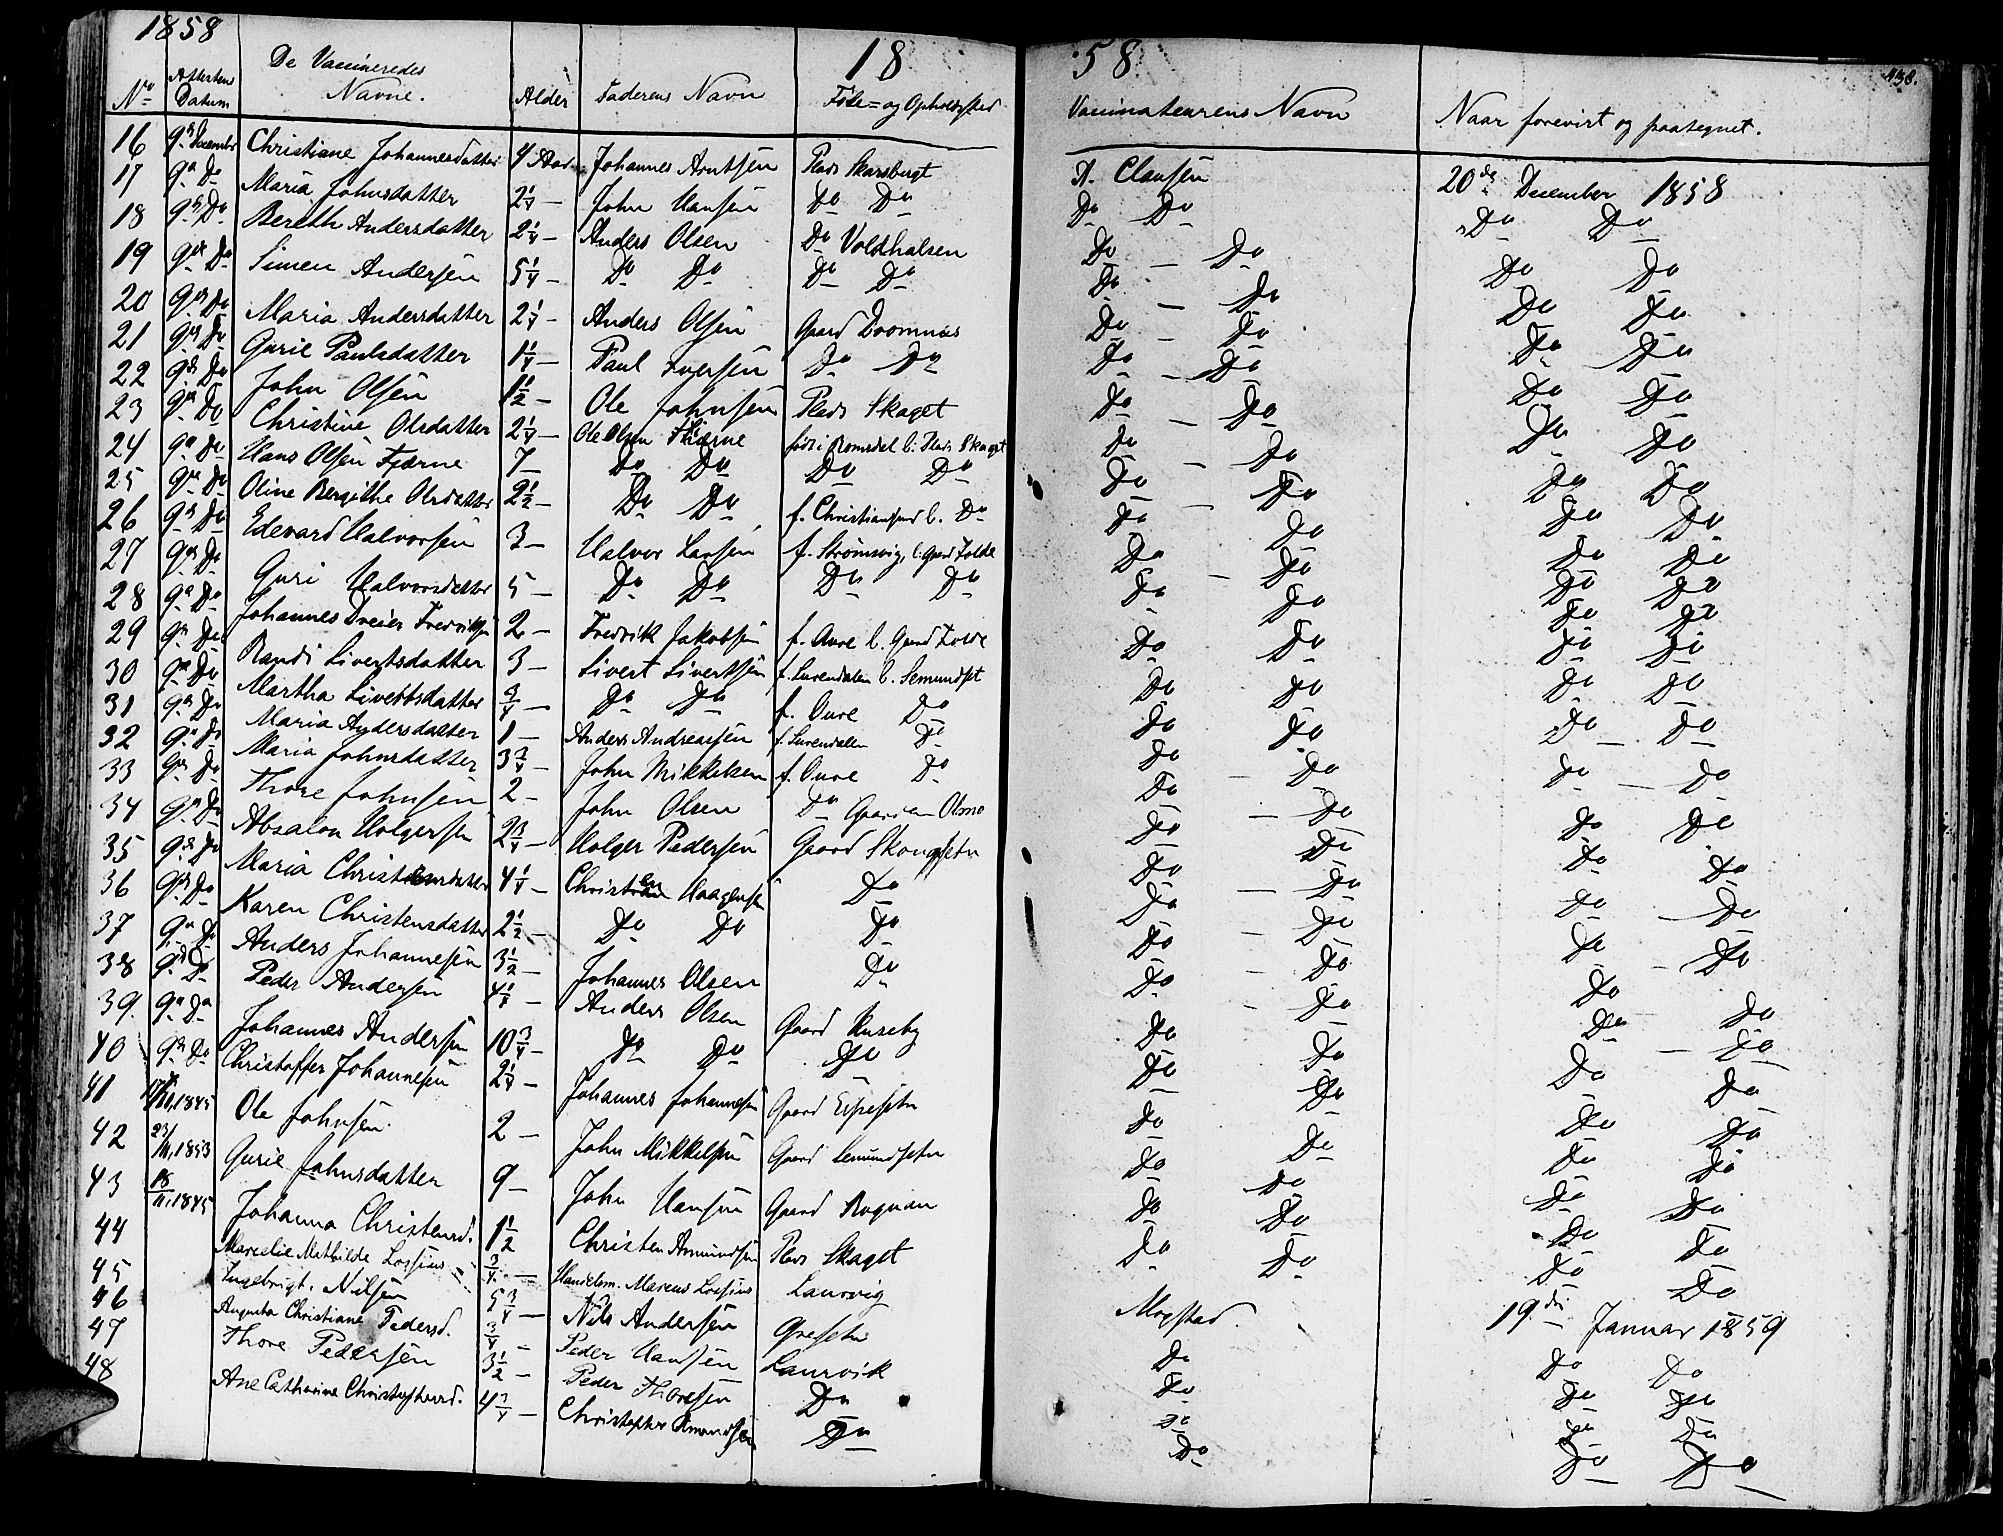 1858
18
58
438.
No Attestens Datum De Vaccineredes Navne. Alder Faderens Navn Føde= og Opholdssted Vaccinateurens Navn Naar forevist og paategnet.
16 9de December Christiane Johannesdatter 4 Aar Johannes Arntsen Plads Skarsbergt A. Clausen 20de December 1858
17 9de Do Maria Johnsdatter 2 1/4 – John Hansen Do Do Do Do Do Do
18 9de Do Bereth Andersdatter 2 1/4 – Anders Olsen Do Voldhalsen Do – Do Do Do
19 9de Do Simen Andersen 5 1/4 – Do Do Do Do Do – Do Do Do
20 9de Do Maria Andersdatter 2 1/4 – Anders Olsen Gaard Dromnæs Do – Do Do Do
21 9de Do Gurie Paulsdatter 1 1/4 – Paul Iversen Do Do Do – Do Do Do
22 9de Do John Olsen 1 1/2 – Ole Johnsen Plads Skaget Do – Do Do Do
23 9de Do Christine Olsdatter 2 1/4 – Ole Olsen Fjærne født i Romsdal b: Plads Skaget Do – Do Do Do
24 9de Do Hans Olsen Fjærne 7 – Do Do Do Do Do – Do Do Do
25 9de Do Oline Bergithe Olsdatter 2 1/2 – Do Do f. Christiansund b. Do Do Do Do Do
26 9de Do Edevard Halvorsen 3 – Halvor Larsen f. Strømsvig, b. Gaard Todde Do – Do Do Do
27 9de Do Guri Halvorsdatter 5 – Do Do Do Do Do Do Do Do
28 9de Do Johannes Dreier Fredriksen 2 – Fredrik Jakobsen f. Aure b. Gaard Todde Do Do Do Do
29 9de Do Randi Sivertsdatter 3 – Sivert Sivertsen f. Surendalen b. Semundset Do Do Do Do
30 9de Do Martha Sivertsdatter 3/4 – Do Do f. Oure Do Do Do Do Do
31 9de Do Maria Andersdatter 1 – Anders Andreasen f. Surendalen Do Do Do Do – Do
32 9de Do Maria Johnsdatter 3 3/4 – John Mikkelsen f. Oure Do Do – Do Do – Do
33 9de Do Thore Johnsen 2 – John Olsen Do Gaarden Olmo Do – Do Do Do
34 9de Do Absalon Holgersen 2 3/4 – Holger Pedersen Gaard Skougsetn Do Do Do Do
35 9de Do Maria Christensdatter 4 1/4 – Christen Haagensen Do Do – Do Do – Do
36 9de Do Karen Christensdatter 2 1/2 – Do Do Do Do – Do Do – Do
37 9de Do Anders Johannesen 3 1/2 – Johannes Olsen Do Do – Do Do Do
38 9de Do Peder Andersen 4 1/4 – Anders Olsen Gaard Ruseby Do – Do Do – Do
39 9de Do Johannes Andersen 10 3/4 – Do Do Do Do Do Do Do
40 9de Do Christoffer Johannesen 2 1/4 – Johannes Johannesen Gaard Espesetn Do Do Do Do
41 17/11, 1845 Ole Johnsen. 2 – John Mikkelsen Gaard Semundsetn Do Do Do Do
42 23/11, 1853 Gurie Johnsdatter 9 – John Hansen Gaard Roquan Do Do Do Do
43 18/11, 1845 Johanna Christensd. 1 1/2 Christen Amundsen Plads Skaget Do Do Do Do
44 Marcelie Mathilde Lossius 3/4 – Handelsm. Marcus Lossius Laurvig Do Do Do Do
45 Ingebrigt. Nilsen 5 3/4 – Nils Andersen Gresetn Mogstad. 19de Januar 1859
46 Augusta Christiane Pedersd. 3/4 – Peder Hansen Laurvik Do Do Do
47 Thore Pedersen 3 1/2 – Peder Thoresen Do Do Do Do
48 Ane Catharine Christophersd. 4 3/4 – Christopher Amundsen Do Do Do Do